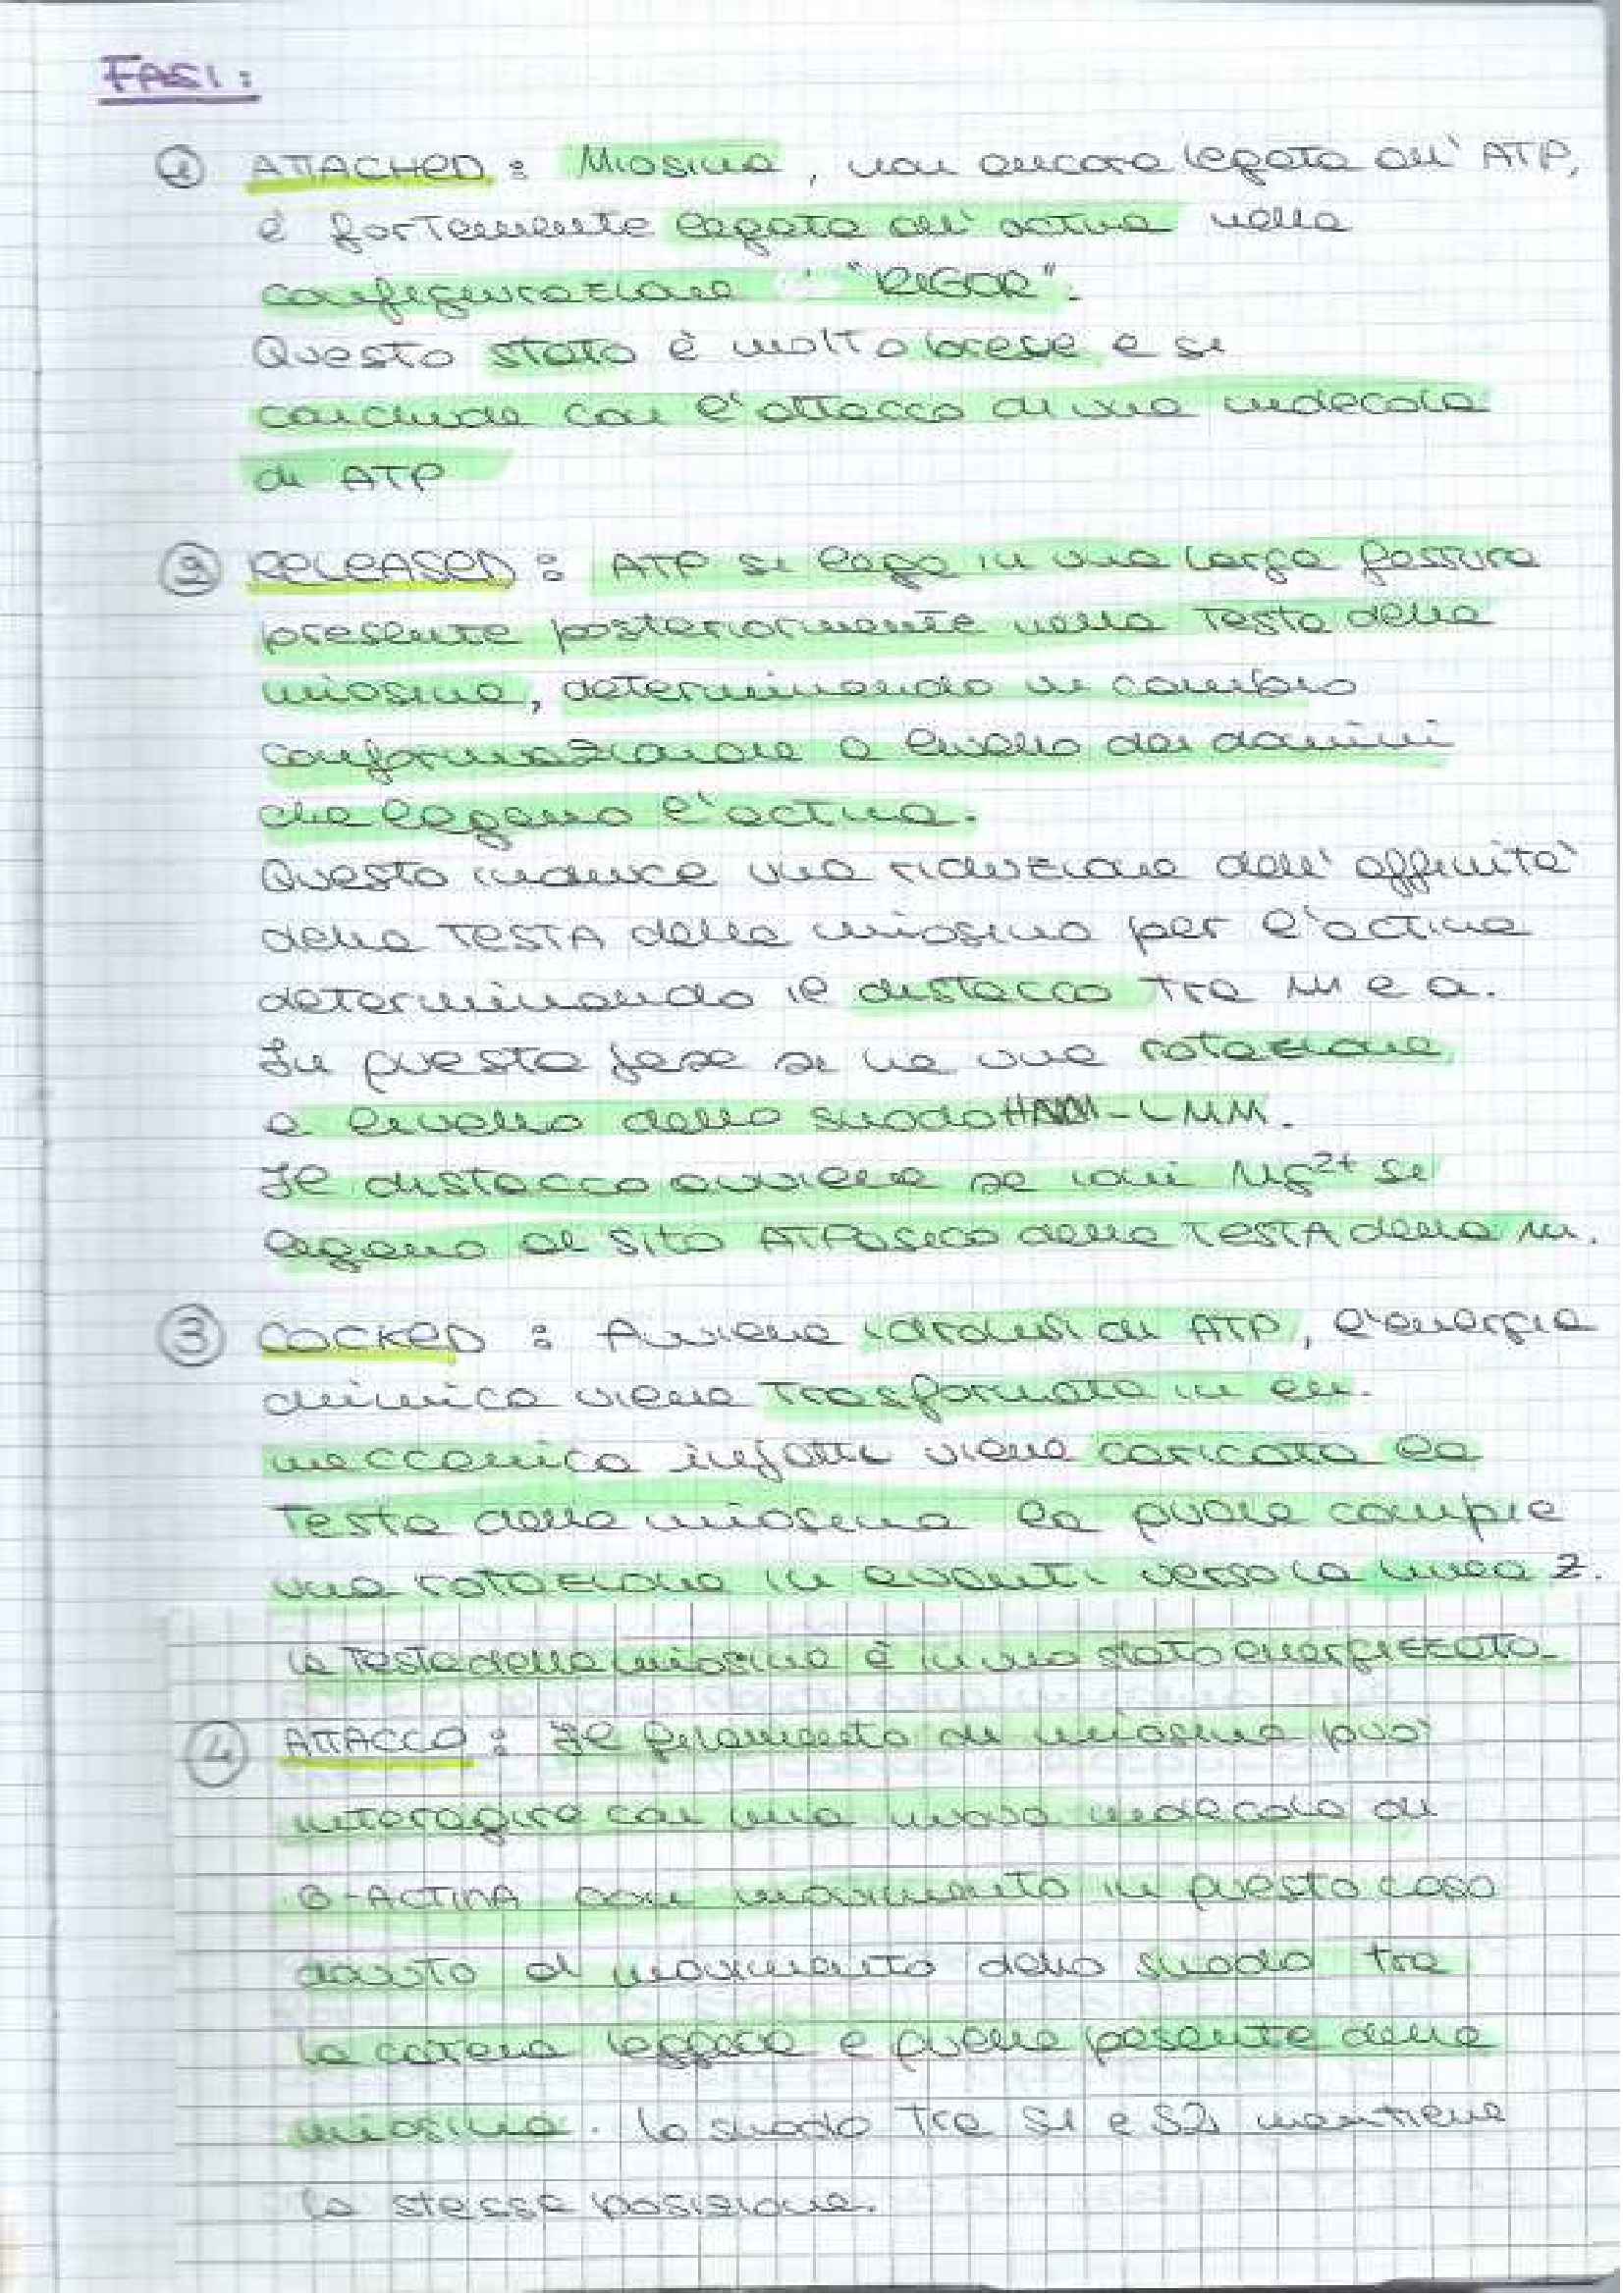 FASI:
① ATTACHED: Miosina, non ancora legata all'ATP,
è fortemente legata all'actina nella
configurazione "RIGOR".
Questo stato è molto breve e si
conclude con l'attacco di una molecola
di ATP
② RELEASED: ATP si lega in una larga fessura
presente posteriormente nella testa della
miosina, determinando un cambio
conformazionale a livello dei domini
che legano l'actina.
Questo induce una riduzione dell'affinità
della TESTA della miosina per l'actina
determinando il distacco tra m e a.
In questa fase si ha una rotazione
a livello dello snodo HMM-LMM.
Il distacco avviene se ioni Mg2+ si
legano al sito ATPasico della TESTA della m.
③ COCKED: Avviene idrolisi di ATP, l'energia
chimica viene trasformata in en.
meccanica infatti viene caricata la
testa della miosina la quale compie
una rotazione in avanti verso la linea Z.
la testa della miosina è in uno stato energizzato.
④ ATTACCO: Il filamento di miosina può
interagire con una nuova molecola di
G-ACTINA con movimento in questo caso
dovuto al movimento dello snodo tra
la catena leggera e quella pesante della
miosina. lo snodo tra S1 e S2 mantiene
la stessa posizione.